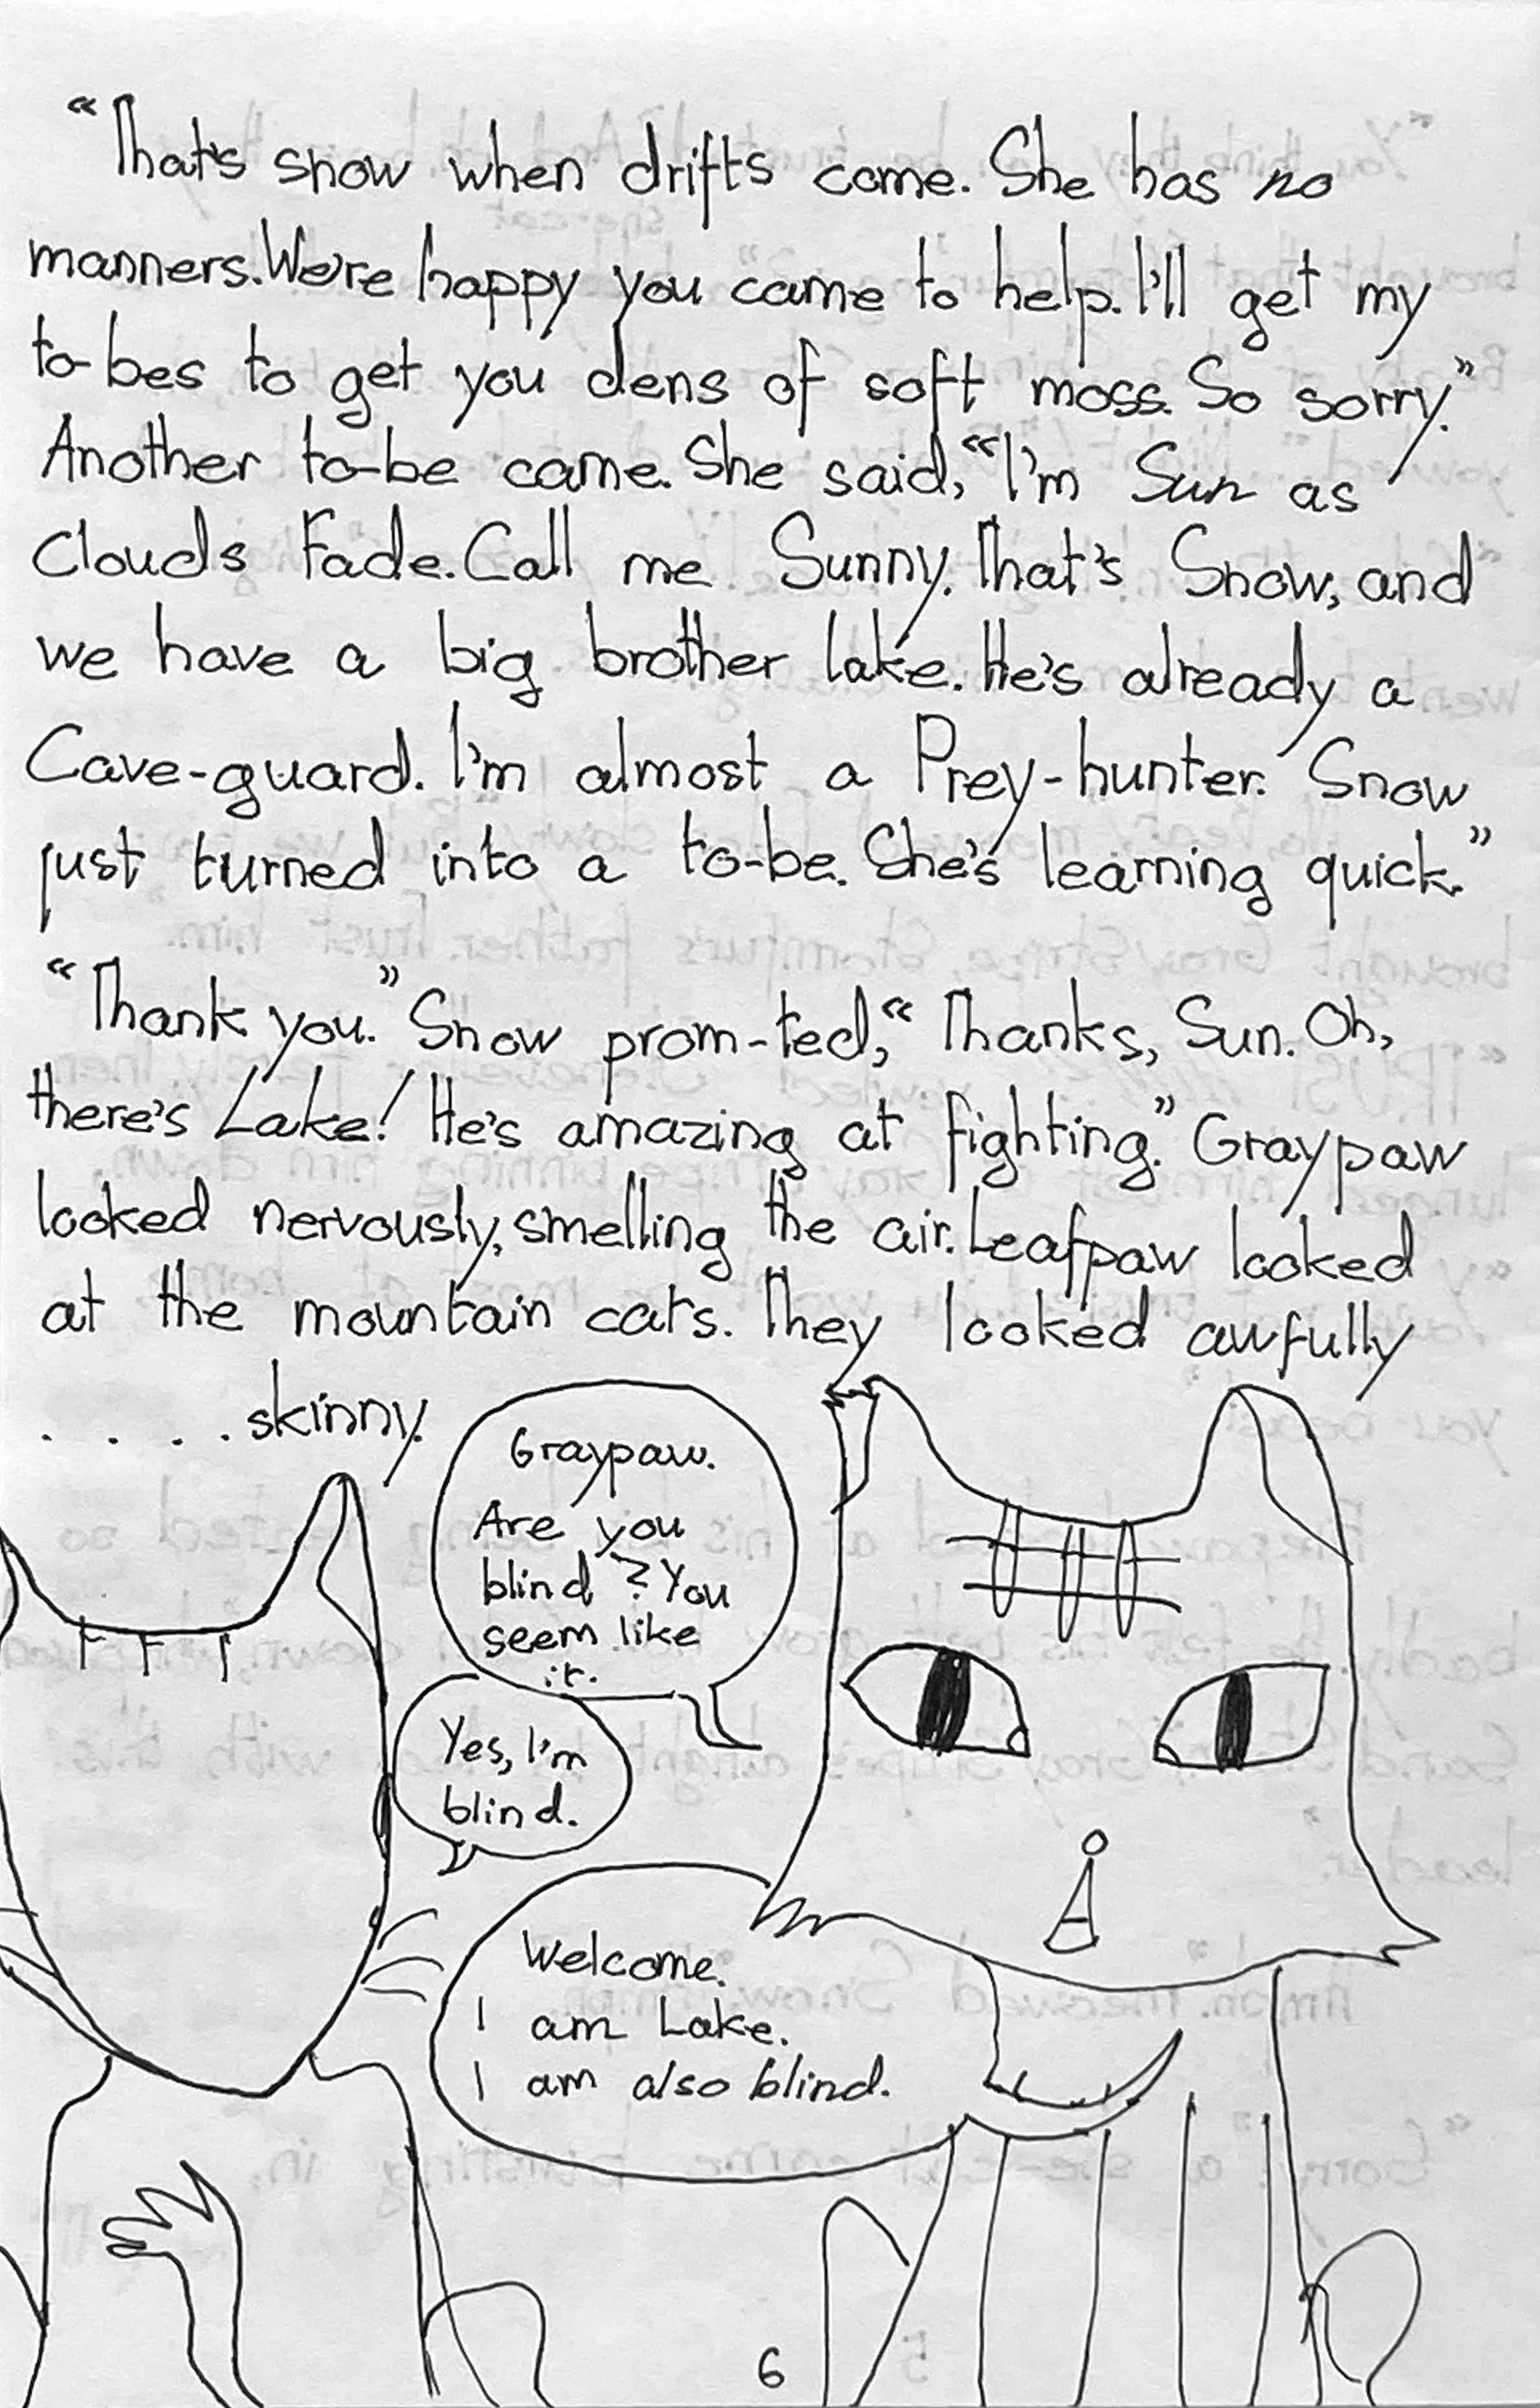 "That's snow when drifts come. She has no
manners. We're happy you came to help. I'll get my
to-bes to get you dens of soft moss. So sorry."
Another to-be came. She said, "I'm Sun as
Clouds Fade. Call me Sunny. That's Snow, and
we have a big brother lake. He's already a
Cave-guard. I'm almost a Prey-hunter. Snow
just turned into a to-be. She's learning quick."
"Thank you." Snow prom-ted, "Thanks, Sun. Oh,
there's Lake! He's amazing at fighting." Graypaw
looked nervously, smelling the air. Leafpaw looked
at the mountain cats. They looked awfully
. . . . skinny.
Graypaw.
Are you
blind? You
seem like
it.
Yes, I'm
blind.
Welcome.
I am Lake.
I am also blind.
6